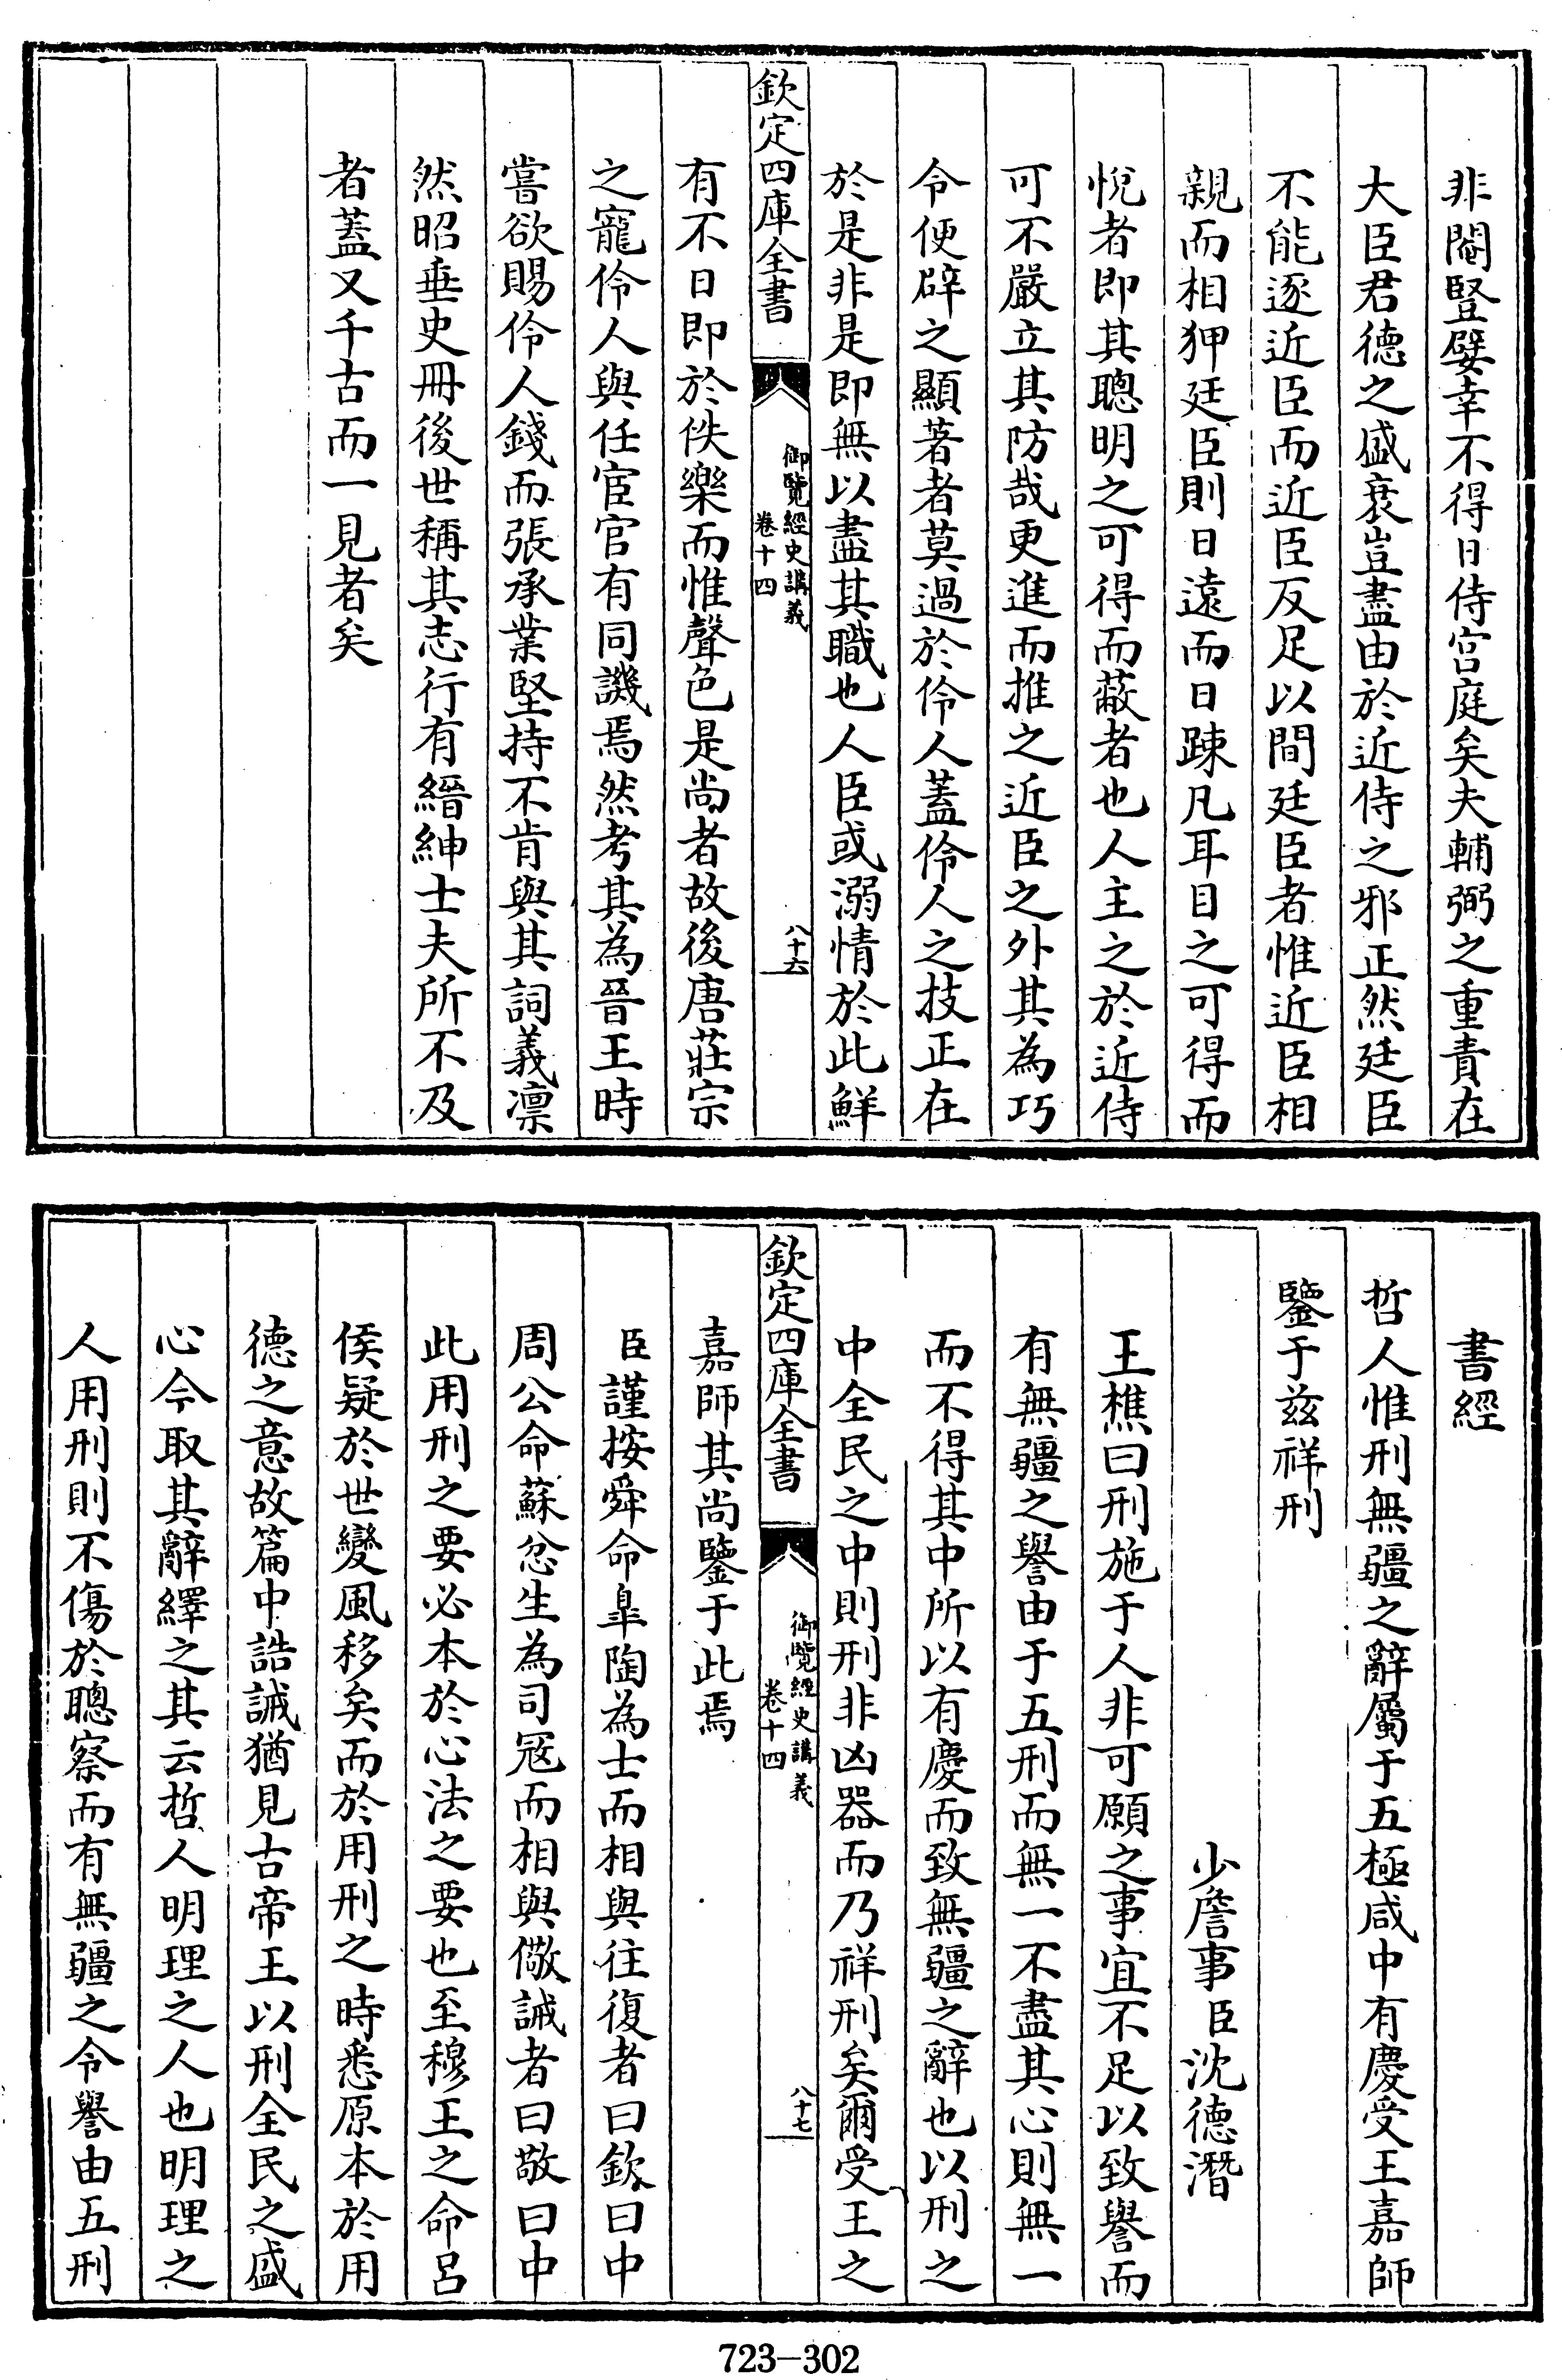 非閹豎嬖幸不得日侍宫庭矣夫輔弼之重責在
大臣君德之盛衰豈盡由於近侍之邪正然廷臣
不能逐近臣而近臣反足以間廷臣者惟近臣相
親而相狎廷臣則日遠而日踈凡耳目之可得而
悅者即其聰明之可得而蔽者也人主之於近侍
可不嚴立其防哉更進而推之近臣之外其為巧
令便辟之顯著者莫過於伶人蓋伶人之技正在
於是非是即無以盡其職也人臣或溺情於此鮮
欽定四庫全書
御覽經史講義
卷十四
八十六
有不日即於佚樂而惟聲色是尚者故後唐莊宗
之寵伶人與任宦官有同譏焉然考其為晉王時
嘗欲賜伶人錢而張承業堅持不肯與其詞義凛
然昭垂史冊後世稱其志行有縉紳士夫所不及
者蓋又千古而一見者矣
書經
哲人惟刑無疆之辭屬于五極咸中有慶受王嘉師
鑒于兹祥刑
少詹事臣沈德潛
王樵曰刑施于人非可願之事宜不足以致譽而
有無疆之譽由于五刑而無一不盡其心則無一
而不得其中所以有慶而致無疆之辭也以刑之
中全民之中則刑非凶器而乃祥刑矣爾受王之
欽定四庫全書
御覽經史講義
卷十四
八十七
嘉師其尚鑒于此焉
臣謹按舜命臯陶為士而相與往復者曰欽曰中
周公命蘇忿生為司冦而相與儆誡者曰敬曰中
此用刑之要必本於心法之要也至穆王之命呂
侯疑於世變風移矣而於用刑之時悉原本於用
德之意故篇中誥誡猶見古帝王以刑全民之盛
心今取其辭繹之其云哲人明理之人也明理之
人用刑則不傷於聰察而有無疆之令譽由五刑
723-302